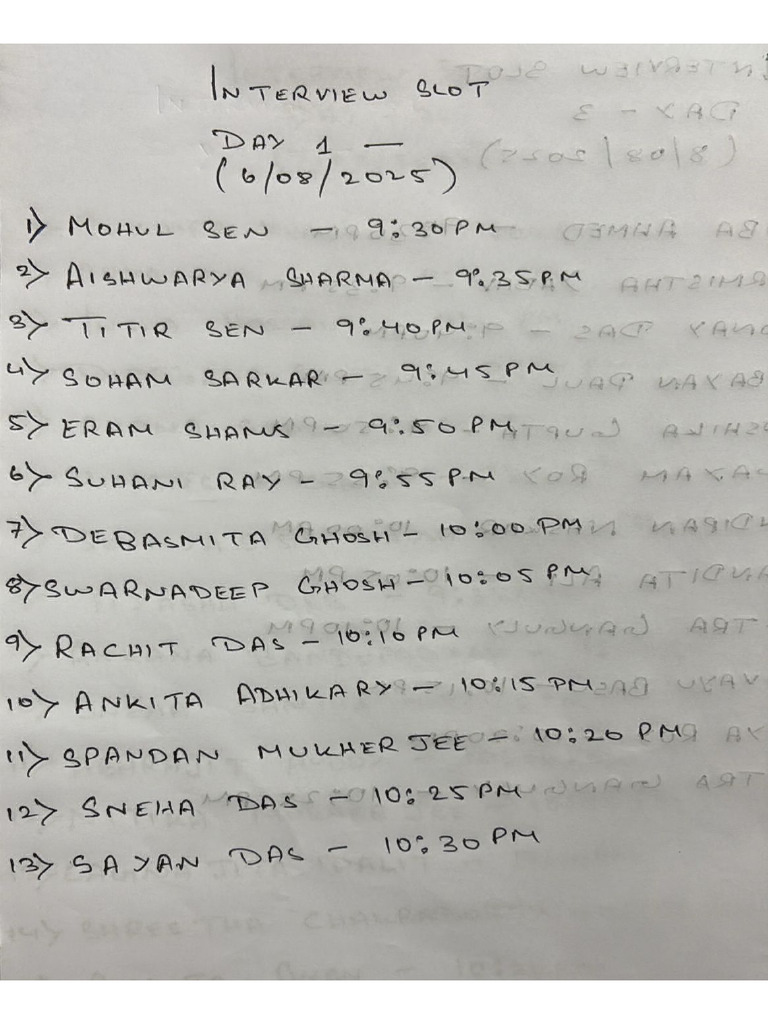 INTERVIEW SLOT
DAY 1 —
(6/08/2025)
1) MOHUL SEN - 9:30 PM
2) AISHWARYA SHARMA - 9:35 PM
3) TITIR SEN - 9:40 PM
4) SOHAM SARKAR - 9:45 PM
5) ERAM SHAMS - 9:50 PM
6) SUHANI RAY - 9:55 PM
7) DEBASMITA GHOSH - 10:00 PM
8) SWARNADEEP GHOSH - 10:05 PM
9) RACHIT DAS - 10:10 PM
10) ANKITA ADHIKARY - 10:15 PM
11) SPANDAN MUKHERJEE - 10:20 PM
12) SNEHA DAS - 10:25 PM
13) SAYAN DAS - 10:30 PM